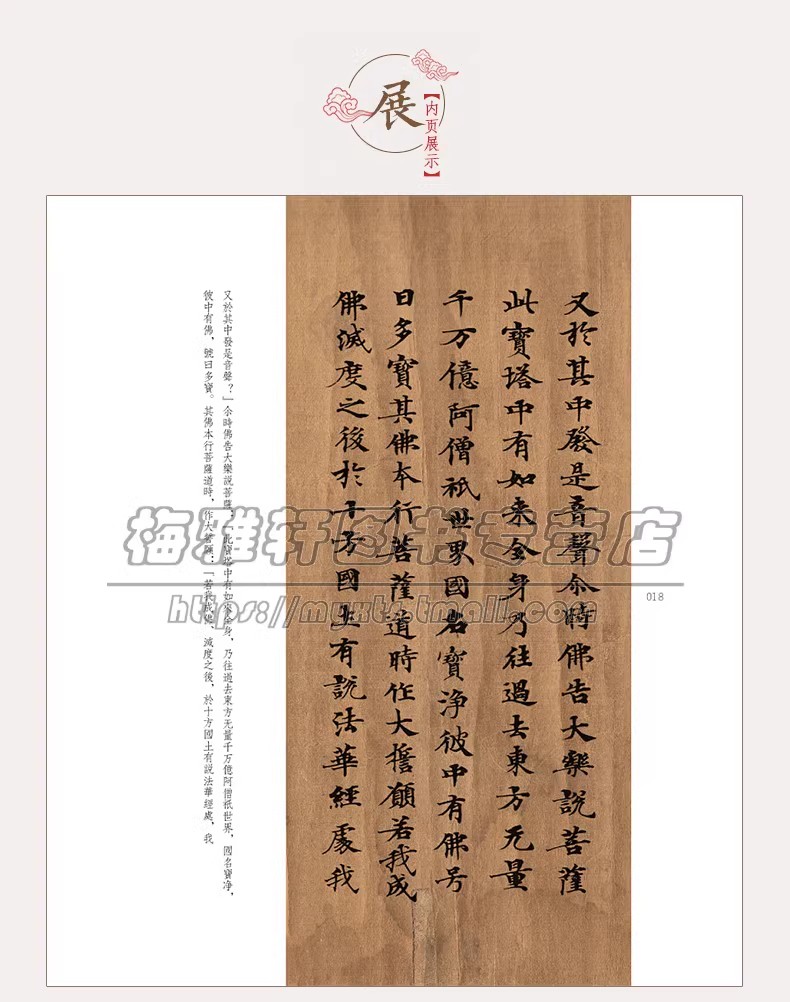 展
【内页展示】
又於其中發是音聲尒時佛告大樂說菩薩
此寶塔中有如来全身乃往過去東方无量
千万億阿僧祇世界國名寶浄彼中有佛号
曰多寶其佛本行菩薩道時作大擔願若我成
佛滅度之後於十方國土有說法華經處我
又於其中發是音聲？」尒時佛告大樂説菩薩：「此寶塔中有如來全身，乃往過去東方无量千万億阿僧祇世界，國名寶净，
彼中有佛，號曰多寶。其佛本行菩薩道時，作大誓願：「若我成佛，滅度之後，於十方國土有説法華經處，我
018
梅雅轩图书专营店
https://myxts.tmall.com